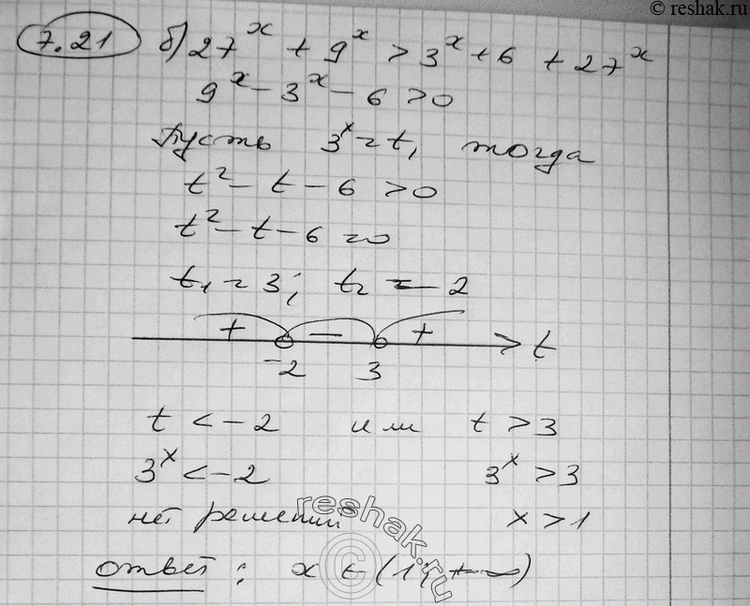 © reshak.ru
7.21 б) 27^x + 9^x > 3^x + 6 + 27^x
9^x - 3^x - 6 > 0
Пусть 3^x = t, тогда
t^2 - t - 6 > 0
t^2 - t - 6 = 0
t₁ = 3; t₂ = -2
+ - + t
-2 3
t < -2 или t > 3
3^x < -2 3^x > 3
нет решений x > 1
Ответ: x ∈ (1; +∞)
reshak.ru
©